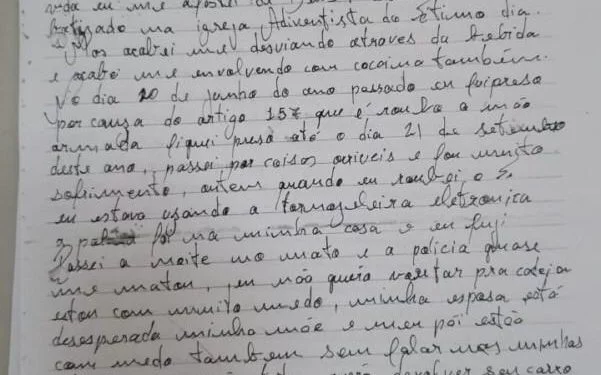 vida eu me afastei da
batizado na igreja Adventista do Sétimo dia.
Mas acabei me desviando atraves da bebida
e acabei me envolvendo com cocaina também.
No dia 20 de junho do ano passado eu fui preso
por causa do artigo 157 que é roubo a mão
armada fiquei preso até o dia 21 de setembro
deste ano, passei por coisas orriveis e foi muito
sofrimento, ontem quando eu roubei o S.
eu estava usando a tornozeleira eletronica
a policia foi na minha casa e eu fugi
Passei a noite no mato e a policia quase
me matou, eu não quero voltar pra cadeia
estou com muito medo, minha esposa está
desesperada minha mãe e meu pai estão
com medo tambem sem falar nas minhas
devolver seu carro